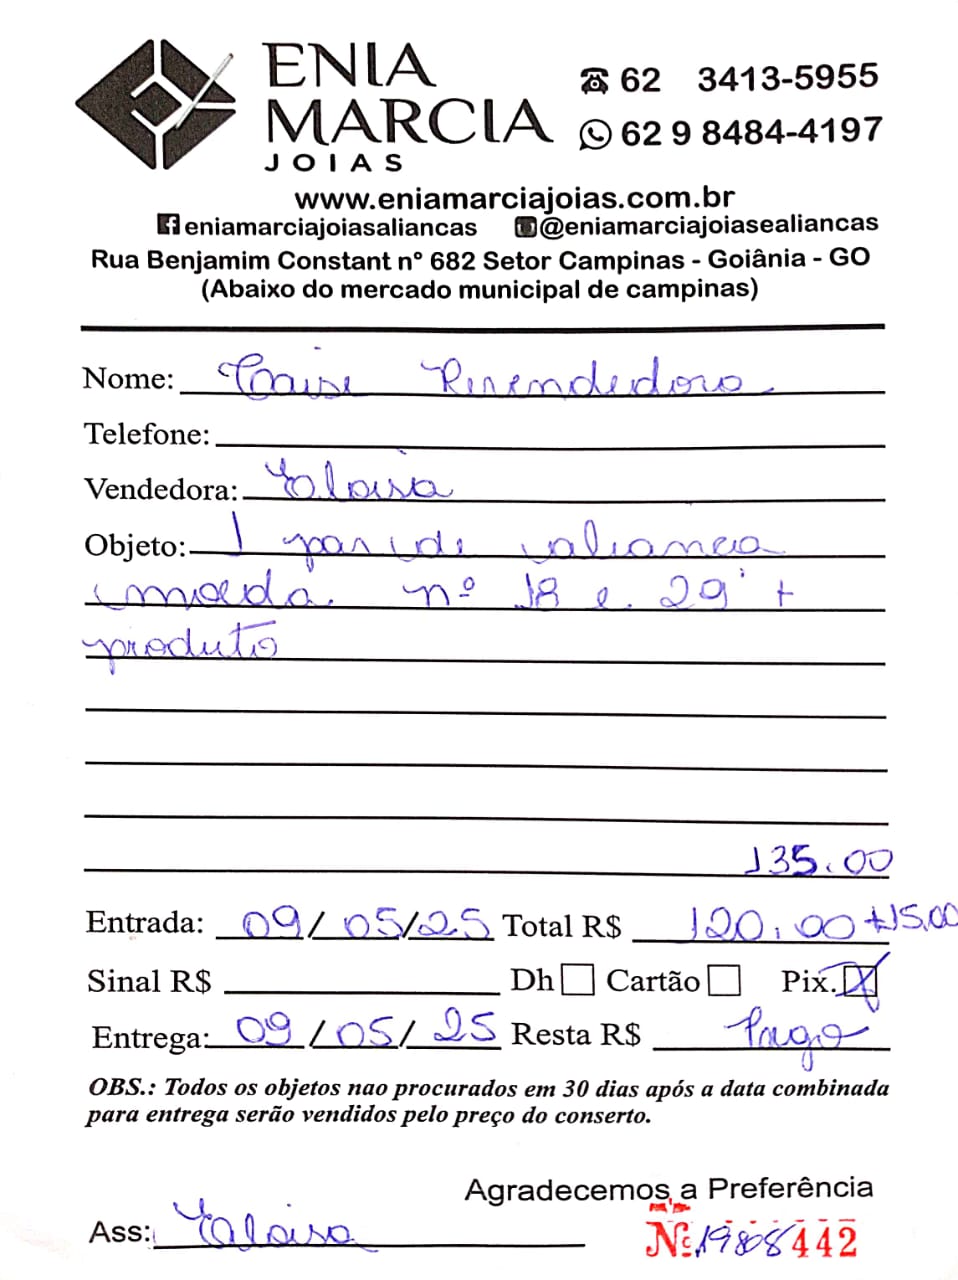 ENIA
MARCIA
JOIAS
62 3413-5955
62 9 8484-4197
www.eniamarciajoias.com.br
eniamarciajoiasaliancas @eniamarciajoiasealiancas
Rua Benjamim Constant nº 682 Setor Campinas - Goiânia - GO
(Abaixo do mercado municipal de campinas)
Nome: Taise Revendedora
Telefone:
Vendedora: Eloisa
Objeto: 1 par de aliança
moeda. nº 18 e 29 +
produto
135.00
Entrada: 09/05/25 Total R$ 120.00 +15.00
Sinal R$ Dh Cartão Pix. X
Entrega: 09/05/25 Resta R$ Pago
OBS.: Todos os objetos nao procurados em 30 dias após a data combinada
para entrega serão vendidos pelo preço do conserto.
Agradecemos a Preferência
Ass: Eloisa
Nº 19808442